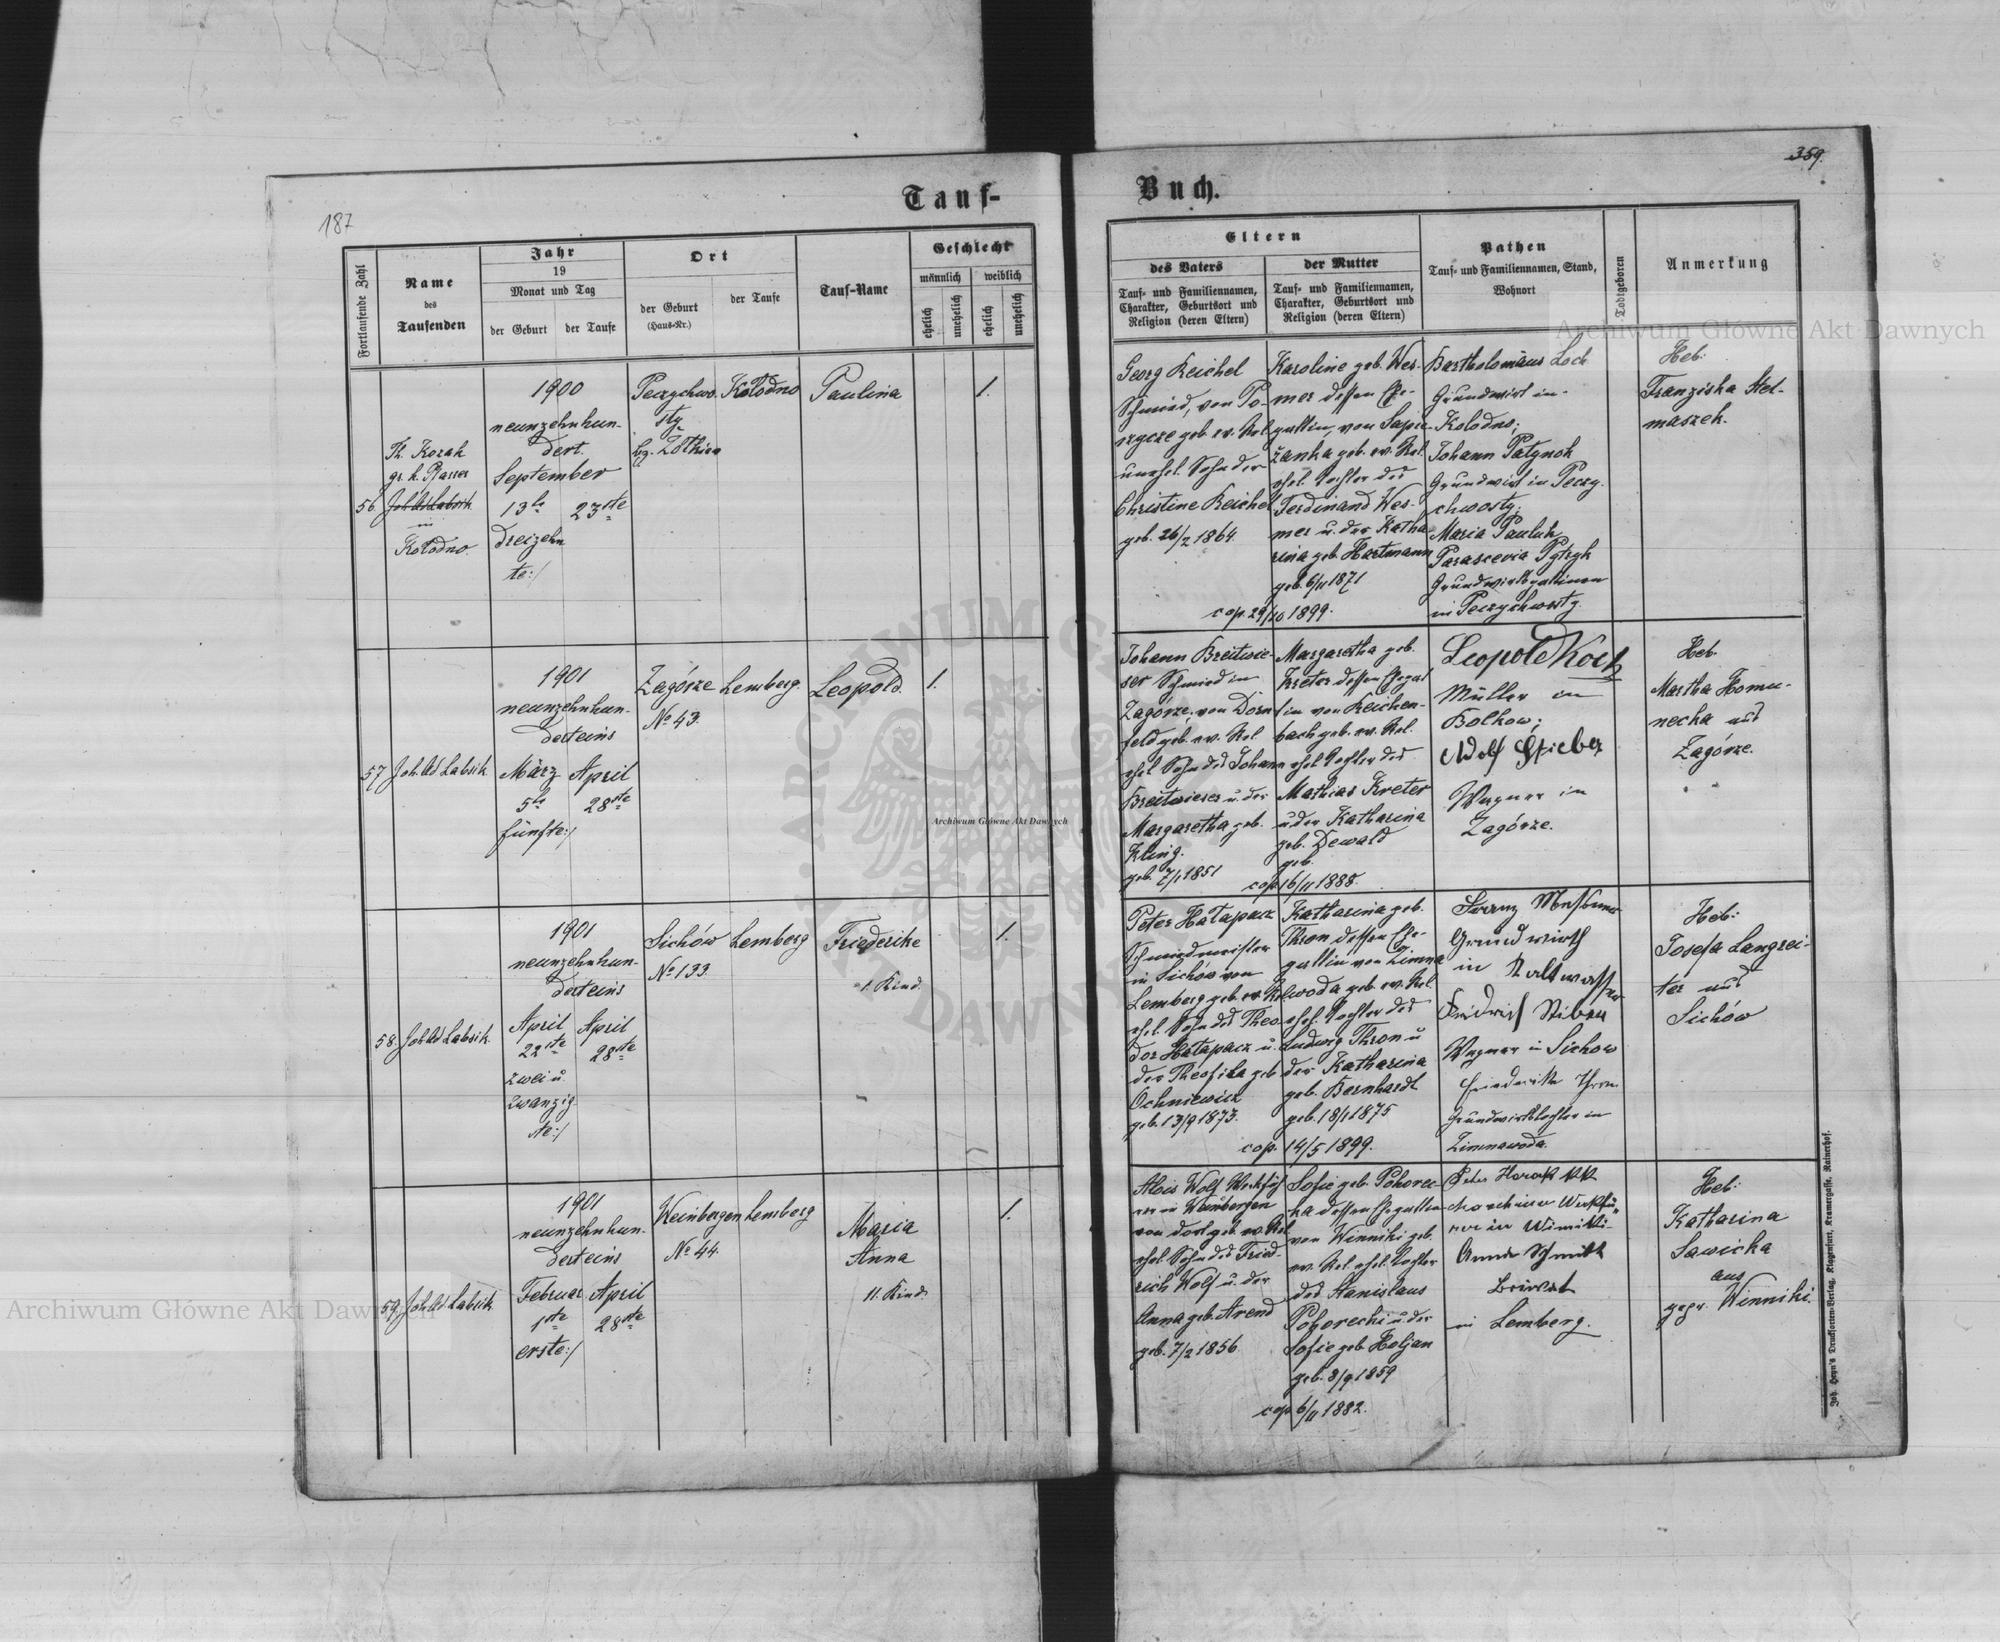 359.
187
Tauf-
Buch.
Fortlaufende Zahl
Name
des
Taufenden
Jahr
19
Monat und Tag
der Geburt
der Taufe
Ort
der Geburt
(Haus-Nr.)
der Taufe
Tauf-Name
Geschlecht
männlich
weiblich
ehelich
unehelich
ehelich
unehelich
Eltern
des Vaters
Tauf- und Familiennamen,
Charakter, Geburtsort und
Religion (deren Eltern)
der Mutter
Tauf- und Familiennamen,
Charakter, Geburtsort und
Religion (deren Eltern)
Pathen
Tauf- und Familiennamen, Stand,
Wohnort
Todtgeboren
Anmerkung
56
Th. Kozak
gr. k. Pfarrer
Joh. Ad. Labsik
in
Kołodno.
1900
neunzehnhun-
dert.
September
13te
23ste
dreizehn
te:/
Peczychwo-
sty
bez. Żółkiew
Kołodno
Paulina
1.
Georg Reichel
Schmied, von Po-
rzecze geb. ev. Rel.
unehel. Sohn der
Christine Reichel
geb. 26/2 1864.
Karoline geb. Wes-
mer dessen Ehe-
gattin, von Sapie-
żanka geb. ev. Rel.
ehel. Tochter des
Ferdinand Wes-
mer u. der Katha
rina geb. Hartmann
geb. 6/11 1871
cop. 29/10 1899.
Bartholomäus Loch
Grundwirt in
Kołodno;
Johann Patynok
Grundwirt in Peczy-
chwosty;
Maria Pauluk
Parascevia Pytryk
Grundwirtsgattinen
in Peczychwosty.
Heb:
Franziska Stel-
maszek.
57
Joh. Ad. Labsik
1901
neunzehnhun-
derteins
März
April
5te
28ste
fünfte:/
Zagórze
No 43.
Lemberg.
Leopold.
1.
Johann Breitwie-
ser Schmied in
Zagórze, von Dorn
feld geb. ev. Rel.
ehel. Sohn des Johann
Breitwieser u. der
Margaretha geb.
Kling.
geb. 7/1 1851
Margaretha geb.
Kreter dessen Ehegat
tin von Reichen-
bach geb. ev. Rel.
ehel. Tochter des
Mathias Kreter
u der Katharina
geb. Dewald
geb.
cop. 16/11 1888.
Leopold Koch
Müller in
Bolkow;
Adolf Stieber
Wagner in
Zagórze.
Heb.
Martha Homu-
necka aus
Zagórze.
58.
Joh. Ad. Labsik.
1901
neunzehnhun-
derteins
April
April
22ste
28ste
zwei u.
zwanzig-
ste:/
Sichów
No 133.
Lemberg
Friederike
1. Kind.
1.
Peter Hałapacz
Schmiedmeister
in Sichów von
Lemberg geb. ev. Rel.
ehel. Sohn des Theo-
dor Hałapacz u.
der Theofila geb
Ochniewicz
geb. 13/9 1873.
Katharina geb.
Thron dessen Ehe-
gattin von Zimna
woda geb. ev. Rel.
ehel. Tochter des
Ludwig Thron u
der Katharina
geb. Bernhardt
geb. 18/1 1875
cop. 14/5 1899.
Grundwirth
in Kaltwasser
Wagner in Sichow
Friederike Thron
Grundwirtstochter in
Zimnawoda.
Heb:
Josefa Langrei-
ter aus
Sichów
59.
Joh. Ad. Labsik
1901
neunzehnhun-
derteins
Februar
April
1ste
28ste
erste:/
Weinbergen
No 44.
Lemberg
Maria
Anna
11. Kind
1.
Alois Wolf Werkfüh
rer in Weinbergen
von dort geb. ev. Rel
ehel. Sohn des Fried-
rich Wolf u. der
Anna geb. Arend
geb. 7/2 1856.
Sofie geb. Pohorec-
ka dessen Ehegattin
von Winniki geb.
ev. Rel. ehel. Tochter
des Stanislaus
Pohorecki u. der
Sofie geb. Holjan
geb. 8/9 1859
cop 6/11 1882.
Peter Horak KK
Maschinen Werkfü-
rer in Winniki-
Anna Schmidt
in Lemberg.
Heb:
Katharina
Sawicka
aus
gepr. Winniki.
Joh. Heyn's Drucksorten-Verlag, Klagenfurt, Kramergasse. Rainerhof.
Archiwum Główne Akt Dawnych
Archiwum Główne Akt Dawnych
Archiwum Główne Akt Dawnych